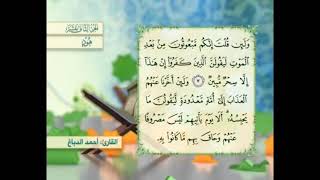 الجزء الثاني عشر
هود
وَلَئِن قُلْتَ إِنَّكُم مَّبْعُوثُونَ مِنۢ بَعْدِ
ٱلْمَوْتِ لَيَقُولَنَّ ٱلَّذِينَ كَفَرُوٓا۟ إِنْ هَٰذَآ
إِلَّا سِحْرٌ مُّبِينٌ ٧ وَلَئِنْ أَخَّرْنَا عَنْهُمُ
ٱلْعَذَابَ إِلَىٰٓ أُمَّةٍ مَّعْدُودَةٍ لَّيَقُولُنَّ مَا
يَحْبِسُهُۥٓ ۗ أَلَا يَوْمَ يَأْتِيهِمْ لَيْسَ مَصْرُوفًا
عَنْهُمْ وَحَاقَ بِهِم مَّا كَانُوا۟ بِهِۦ
القارئ: أحمد الدباغ